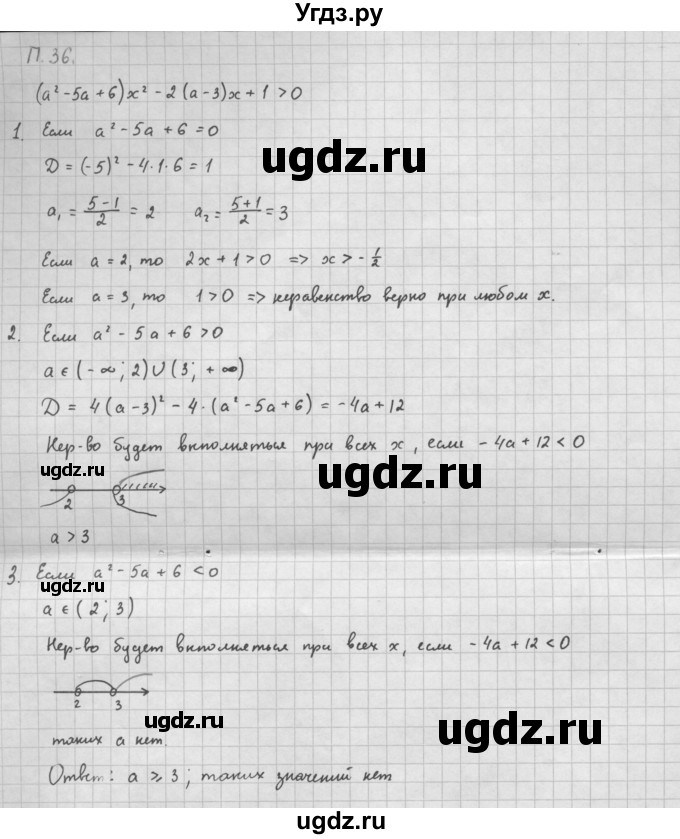 Угдз.ру
П.36.
(a² - 5a + 6)x² - 2(a - 3)x + 1 > 0
1. Если a² - 5a + 6 = 0
D = (-5)² - 4·1·6 = 1
a₁ = (5-1)/2 = 2   a₂ = (5+1)/2 = 3
ugdz.ru
ugdz.ru
Если a = 2, то 2x + 1 > 0 => x > -1/2
Если a = 3, то 1 > 0 => неравенство верно при любом x.
2. Если a² - 5a + 6 > 0
a ∈ (-∞; 2) ∪ (3; +∞)
D = 4(a - 3)² - 4·(a² - 5a + 6) = -4a + 12
Нер-во будет выполняться при всех x, если -4a + 12 < 0
ugdz.ru
ugdz.ru
2 3
a > 3
3. Если a² - 5a + 6 < 0
ugdz.ru
a ∈ (2; 3)
Нер-во будет выполняться при всех x, если -4a + 12 < 0
2 3
ugdz.ru
ugdz.ru
таких a нет.
Ответ: a ⩾ 3; таких значений нет
ugdz.ru